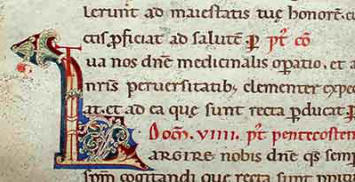 lerunt ad maiestatis tuę honorē
ctis ꝓficiat ad salutē ꝑ p̄t cō
ua nos dn̄e medicinalis oꝑatio. et a
nr̄is perversitatibꝫ clementer expe
at. et ad ea que sunt recta ꝑducat ꝑ
Dom̄. VIIII. p̄t pentecosten
LARGIRE nobis dn̄e qs̄ semp
sp̄m cogitandi que recta sunt